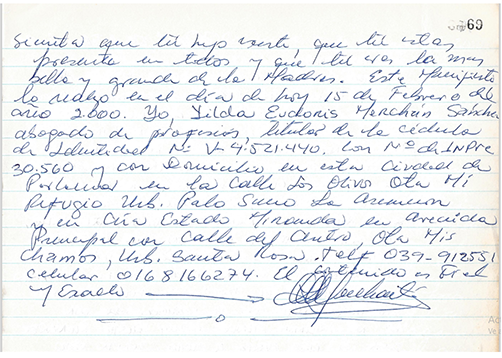 69
que tu hijo siente, que tu estas
presente en todos, y que tu eres la mas
bella y grande de la Madres. Este Manifiesto
lo realizo en el día de hoy 15 de Febrero del
año 2.000. Yo, Tilda Eudoris Merchán Sánchez
abogado de profesion, titular de la cédula
de Identidad Nº V-4.521.440. con Nº de INPRE
30.560 y con Domicilio en esta Ciudad de
Porlamar en la Calle Los Olivos Qta Mi
Refugio Urb. Palo Sano La Asuncion
y en Estado Miranda en Avenida
Principal con Calle del Centro Qta Mis
Chamos, Urb. Santa Rosa. Telf 039-912551
Celular 0168166274. El contenido es Fiel
y Exacto